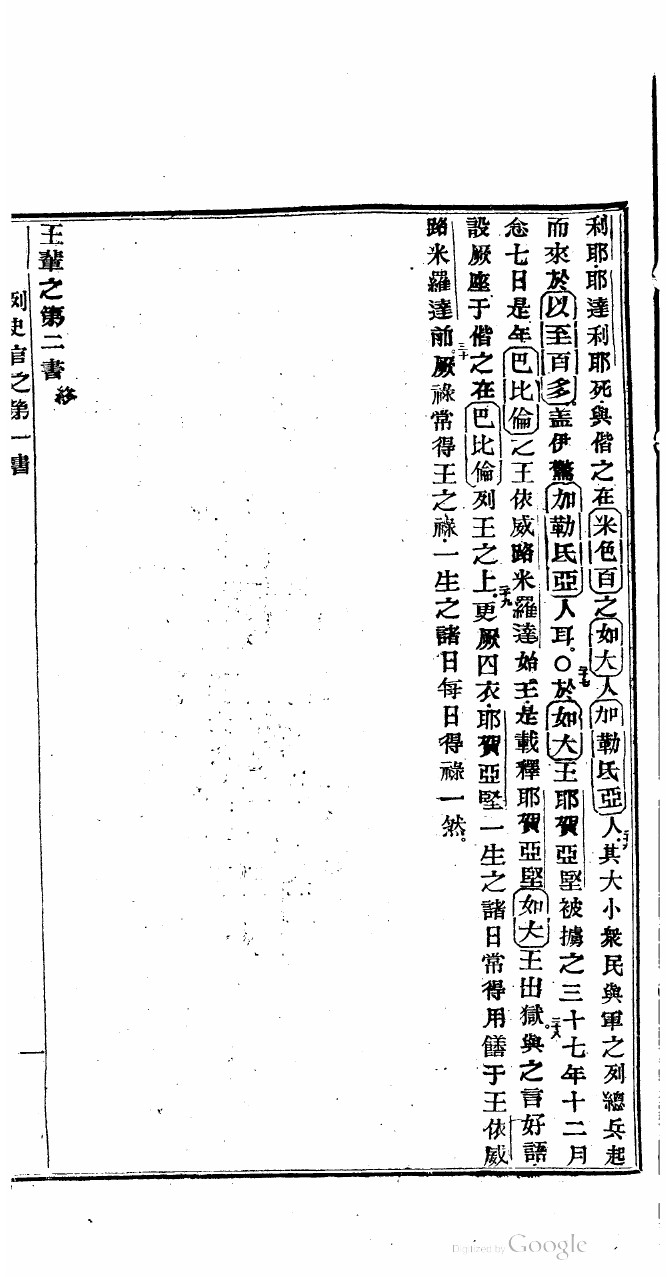 利耶耶達利耶死與偕之在米色百之如大人加勒氏亞人二十六其大小衆民與軍之列總兵起
而來於以至百多盖伊驚加勒氏亞人耳。○二十七於如大王耶賀亞堅被擄之三十七年十二月
念七日是年巴比倫之王依威路米羅達始王是載釋耶賀亞堅如大王出獄。二十八與之言好語
設厥座于偕之在巴比倫列王之上。二十九更厥囚衣耶賀亞堅一生之諸日常得用饍于王依威
路米羅達前。三十厥祿常得王之祿一生之諸日每日得祿一然。
王輩之第二書 終
列史官之第一書
一
Digitized by Google